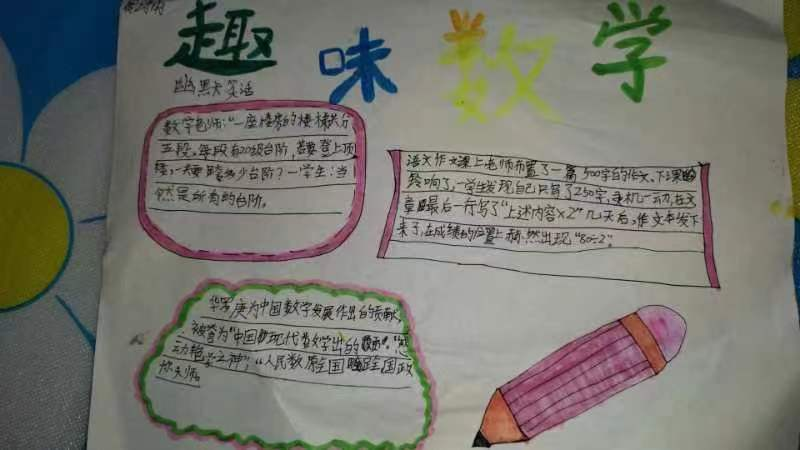 趣味数学
幽默笑话
数学老师:“一座楼房的楼梯共分
五段,每段有20级台阶,若要登上顶
楼,一共要踏多少台阶?一学生:当
然是所有的台阶。
语文作文课上老师布置了一篇500字的作文,下课的
铃响了,一学生发现自己只写了250字,灵机一动,在文
章最后一行写了“上述内容×2”几天后,作文本发下
来了,在成绩的位置上赫然出现“80÷2”。
华罗庚为中国数学发展作出的贡献
被誉为“中国现代数学
之神”,“人民数